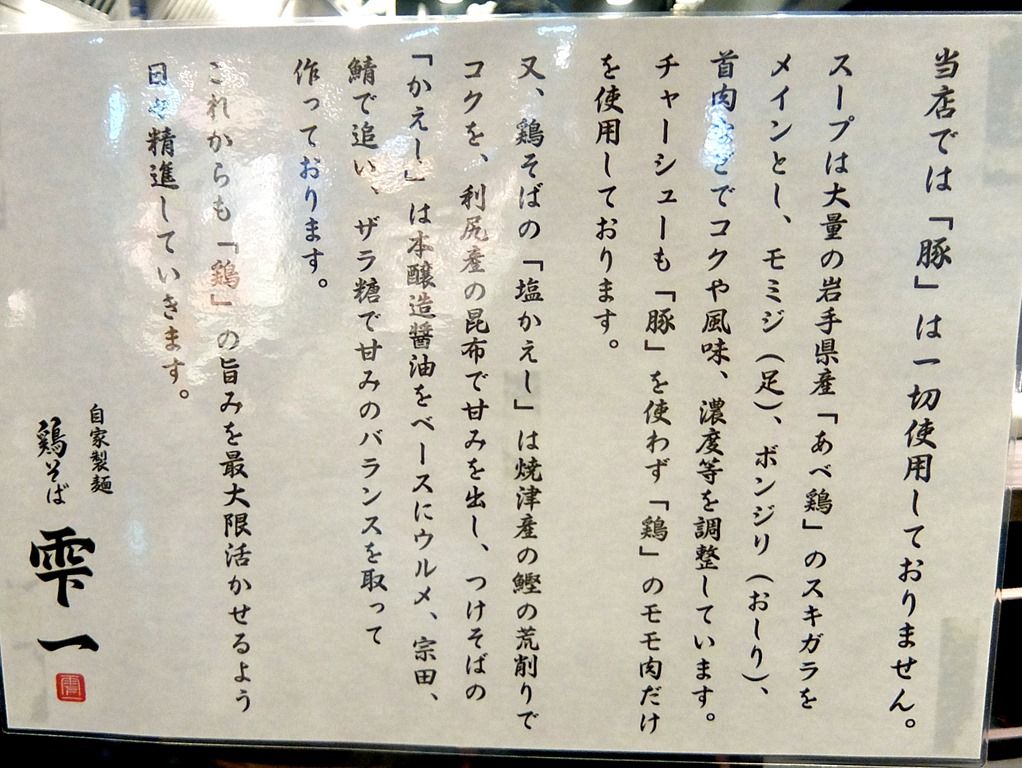 当店では「豚」は一切使用しておりません。
スープは大量の岩手県産「あべ鶏」のスキガラを
メインとし、モミジ（足）、ボンジリ（おしり）、
首肉などでコクや風味、濃度等を調整しています。
チャーシューも「豚」を使わず「鶏」のモモ肉だけ
を使用しております。
又、鶏そばの「塩かえし」は焼津産の鰹の荒削りで
コクを、利尻産の昆布で甘みを出し、つけそばの
「かえし」は本醸造醤油をベースにウルメ、宗田、
鯖で追い、ザラ糖で甘みのバランスを取って
作っております。
これからも「鶏」の旨みを最大限活かせるよう
日々精進していきます。
自家製麺
鶏そば
雫一